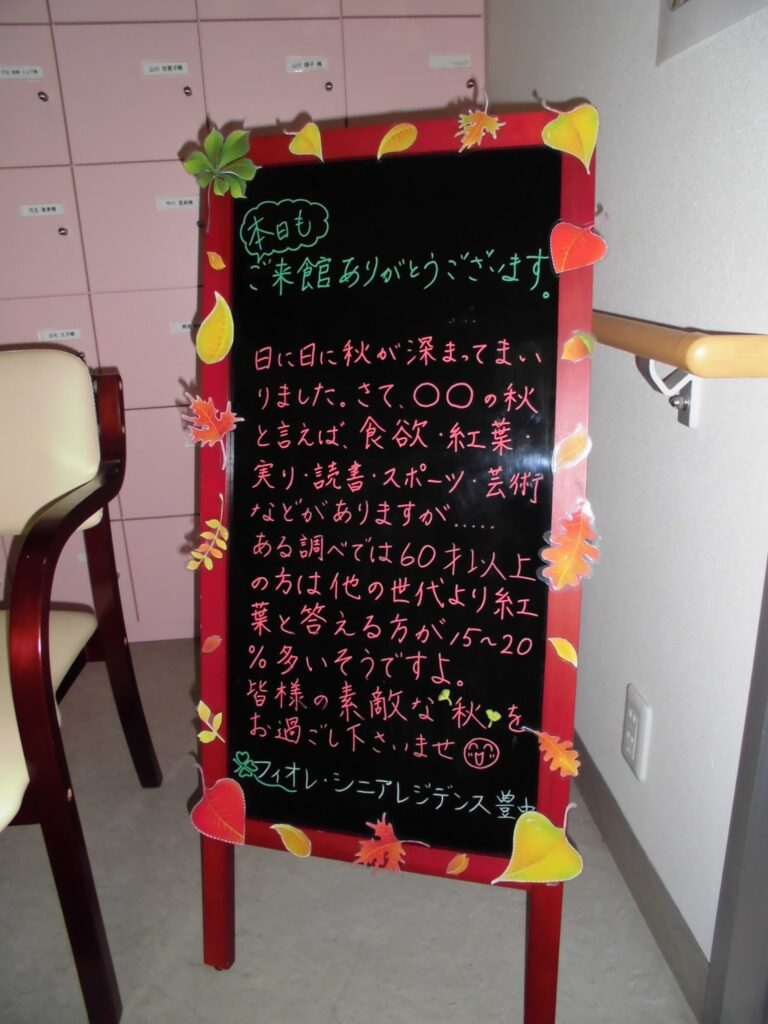 本日も
ご来館ありがとうございます。
日に日に秋が深まってまい
りました。さて、〇〇の秋
と言えば、食欲・紅葉・
実り・読書・スポーツ・芸術
などがありますが.....
ある調べでは60才以上
の方は他の世代より紅
葉と答える方が15～20
%多いそうですよ。
皆様の素敵な"秋"を
お過ごし下さいませ
フィオレ・シニアレジデンス豊中